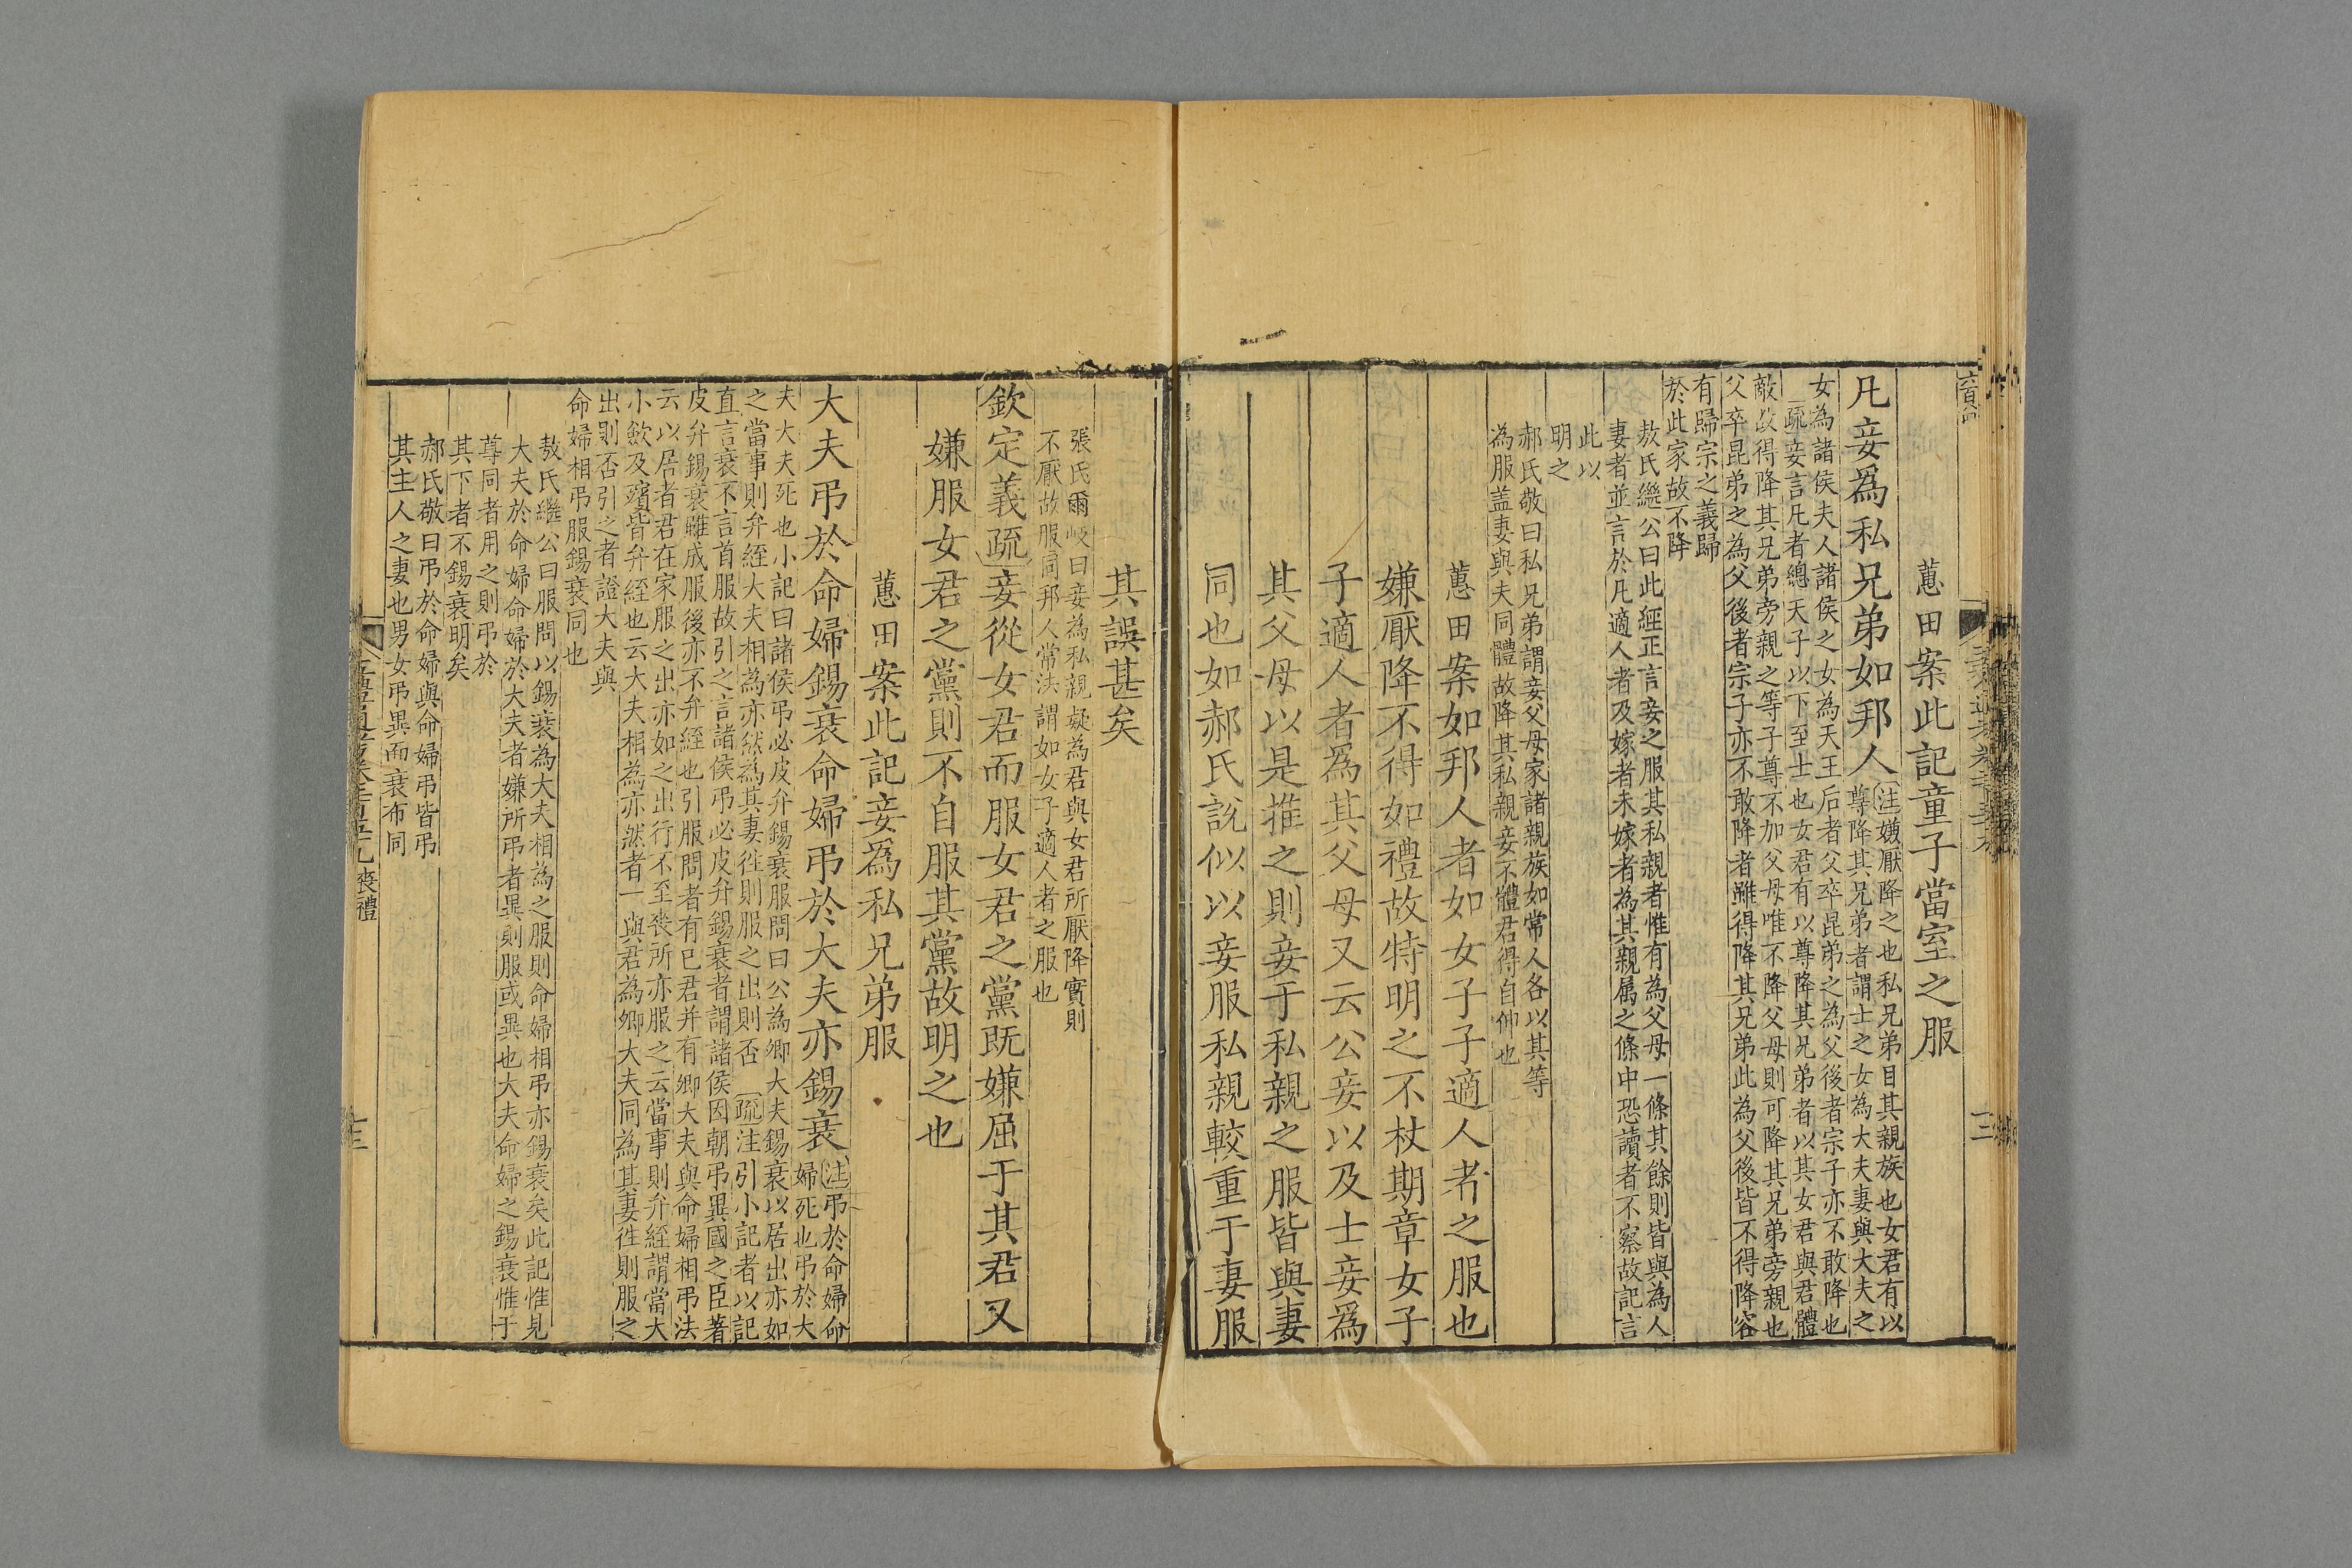 蕙田案此記童子當室之服
凡妾爲私兄弟如邦人
注嫌厭降之也私兄弟目其親族也女君有以
尊降其兄弟者謂士之女為大夫妻與大夫之
女為諸侯夫人諸侯之女為天王后者父卒昆弟之為父後者宗子亦不敢降也
疏妾言凡者總天子以下至士也女君有以尊降其兄弟者以其女君與君體
敵故得降其兄弟旁親之等子尊不加父母唯不降父母則可降其兄弟旁親也
父卒昆弟之為父後者宗子亦不敢降者雖得降其兄弟此為父後皆不得降容
有歸宗之義歸
於此家故不降
敖氏繼公曰此經正言妾之服其私親者惟有為父母一條其餘則皆與為人
妻者並言於凡適人者及嫁者未嫁者為其親屬之條中恐讀者不察故記言
此以
明之
郝氏敬曰私兄弟謂妾父母家諸親族如常人各以其等
為服盖妻與夫同體故降其私親妾不體君得自伸也
蕙田案如邦人者如女子子適人者之服也
嫌厭降不得如禮故特明之不杖期章女子
子適人者爲其父母又云公妾以及士妾爲
其父母以是推之則妾于私親之服皆與妻
同也如郝氏說似以妾服私親較重于妻服
其誤甚矣
張氏爾岐曰妾為私親疑為君與女君所厭降實則
不厭故服同邦人常法謂如女子適人者之服也
欽定義疏妾從女君而服女君之黨既嫌屈于其君又
嫌服女君之黨則不自服其黨故明之也
蕙田案此記妾爲私兄弟服
大夫弔於命婦錫衰命婦弔於大夫亦錫衰
注弔於命婦命
婦死也弔於大
夫大夫死也小記曰諸侯弔必皮弁錫衰服問曰公為卿大夫錫衰以居出亦如
之當事則弁絰大夫相為亦然為其妻徃則服之出則否 疏注引小記者以記
直言衰不言首服故引之言諸侯弔必皮弁錫衰者謂諸侯因朝弔異國之臣著
皮弁錫衰雖成服後亦不弁絰也引服問者有已君并有卿大夫與命婦相弔法
云以居者君在家服之出亦如之出行不至喪所亦服之云當事則弁絰謂當大
小斂及殯皆弁絰也云大夫相為亦然者一與君為卿大夫同為其妻徃則服之
出則否引之者證大夫與
命婦相弔服錫衰同也
敖氏繼公曰服問以錫衰為大夫相為之服則命婦相弔亦錫衰矣此記惟見
大夫於命婦命婦於大夫者嫌所弔者異則服或異也大夫命婦之錫衰惟于
尊同者用之則弔於
其下者不錫衰明矣
郝氏敬曰弔於命婦與命婦弔皆弔
其主人之妻也男女弔異而衰布同
喪禮